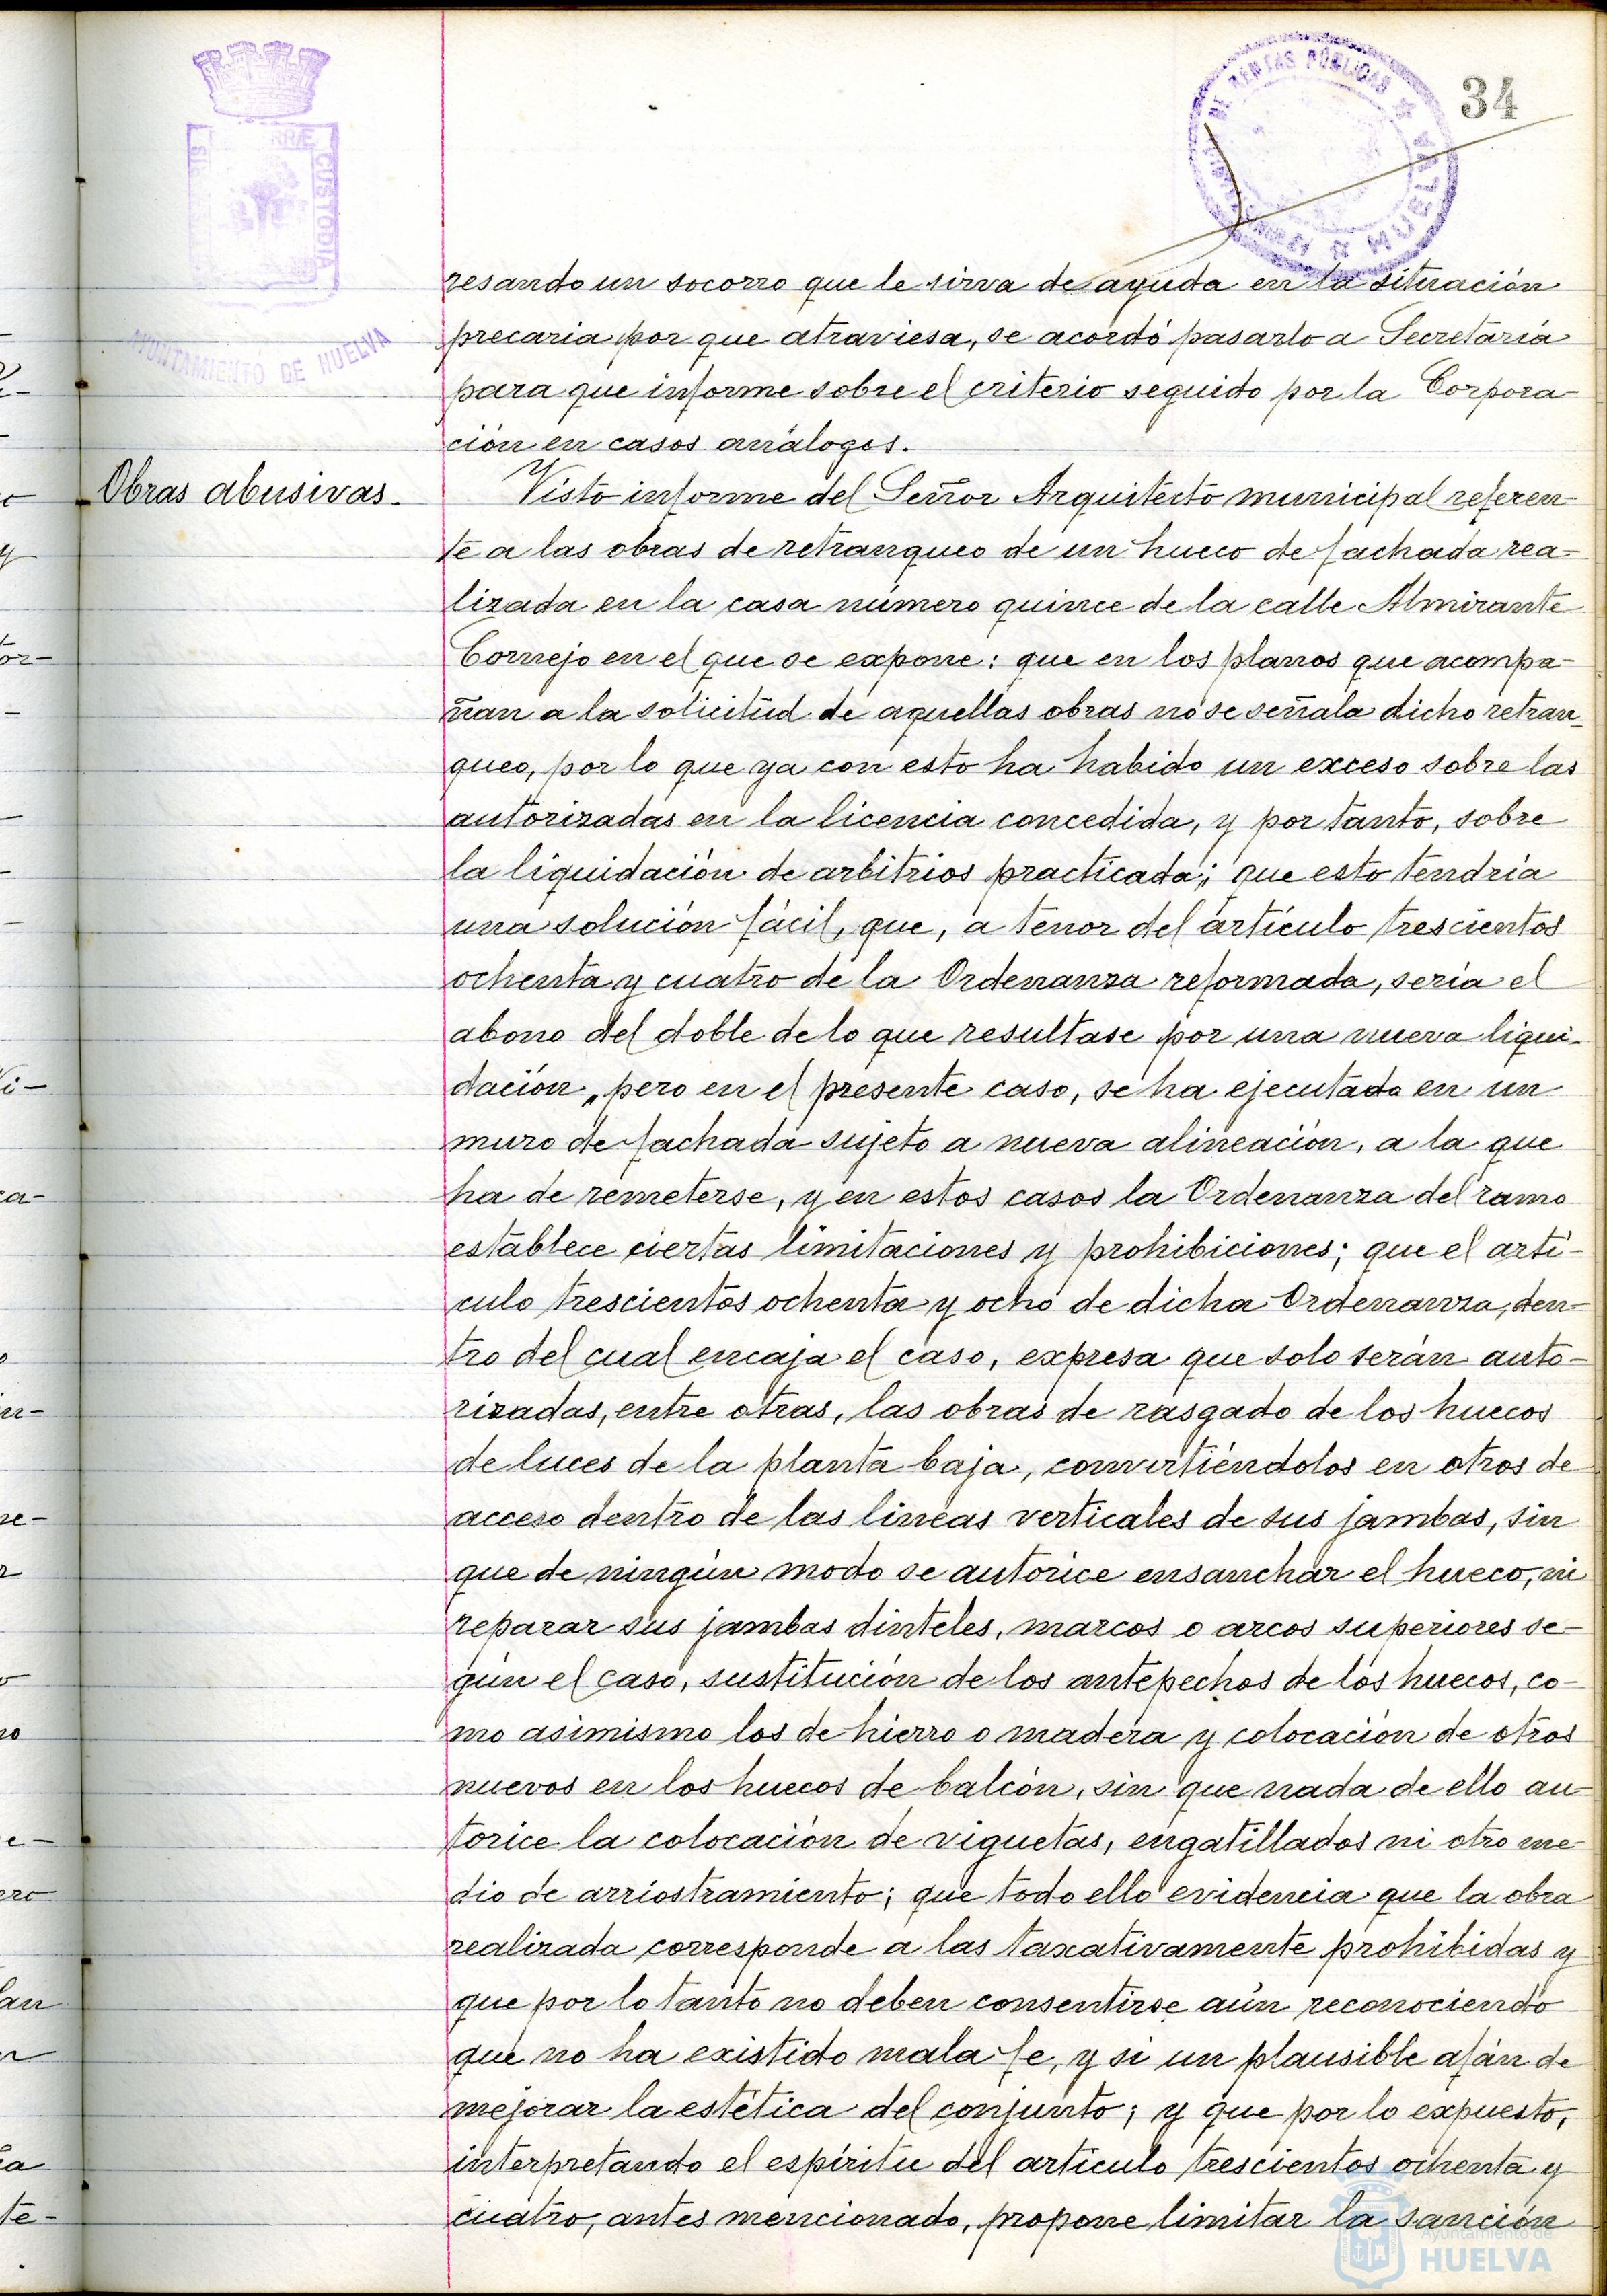 34
DE RENTAS PÚBLICAS
HUELVA
CUSTODIA
AYUNTAMIENTO DE HUELVA
resando un socorro que le sirva de ayuda en la situación
precaria por que atraviesa, se acordó pasarlo a Secretaría
para que informe sobre el criterio seguido por la Corpora-
ción en casos análogos.
Obras abusivas.
Visto informe del Señor Arquitecto municipal referen-
te a las obras de retranqueo de un hueco de fachada rea-
lizada en la casa número quince de la calle Almirante
Cornejo en el que se expone: que en los planos que acompa-
ñan a la solicitud de aquellas obras no se señala dicho retran-
queo, por lo que ya con esto ha habido un exceso sobre las
autorizadas en la licencia concedida, y por tanto, sobre
la liquidación de arbitrios practicada; que esto tendría
una solución fácil, que, a tenor del artículo trescientos
ochenta y cuatro de la Ordenanza reformada, sería el
abono del doble de lo que resultase por una nueva liqui-
dación, pero en el presente caso, se ha ejecutado en un
muro de fachada sujeto a nueva alineación, a la que
ha de remeterse, y en estos casos la Ordenanza del ramo
establece ciertas limitaciones y prohibiciones; que el artí-
culo trescientos ochenta y ocho de dicha Ordenanza, den-
tro del cual encaja el caso, expresa que solo serán auto-
rizadas, entre otras, las obras de rasgado de los huecos
de luces de la planta baja, convirtiéndolos en otros de
acceso dentro de las lineas verticales de sus jambas, sin
que de ningún modo se autorice ensanchar el hueco, ni
reparar sus jambas dinteles, marcos o arcos superiores se-
gún el caso, sustitución de los antepechos de los huecos, co-
mo asimismo los de hierro o madera y colocación de otros
nuevos en los huecos de balcón, sin que nada de ello au-
torice la colocación de viguetas, engatillados ni otro me-
dio de arriostramiento; que todo ello evidencia que la obra
realizada corresponde a las taxativamente prohibidas y
que por lo tanto no deben consentirse aún reconociendo
que no ha existido mala fe, y si un plausible afán de
mejorar la estética del conjunto; y que por lo expuesto,
interpretando el espíritu del artículo trescientos ochenta y
cuatro, antes mencionado, propone limitar la sanción
Ayuntamiento de
HUELVA